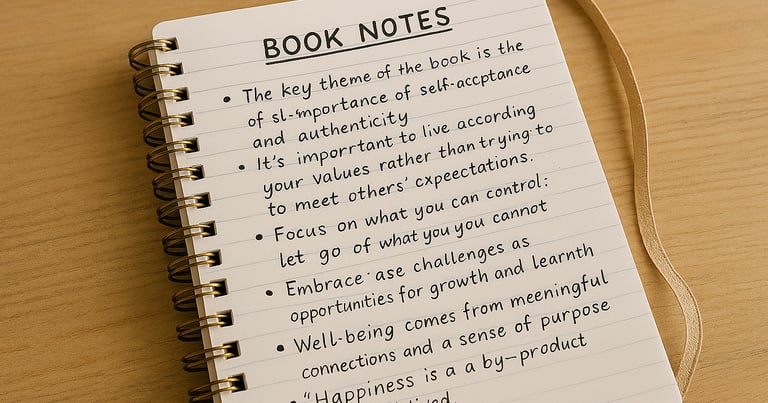 BOOK NOTES
• The key theme of the book is the
of sl-importance of self-accptance
and authenticity
• It's imporrtant to live according
your values rather than trying to
to meet others' cxpectations.
• Focus on what you can control:
let go of what you you cannot
• Embrace ase challenges as
opportunities for growth and learnth
• Well-being comes from meeningful
connections and a sense of purpose
• "Happiness is a a by-product